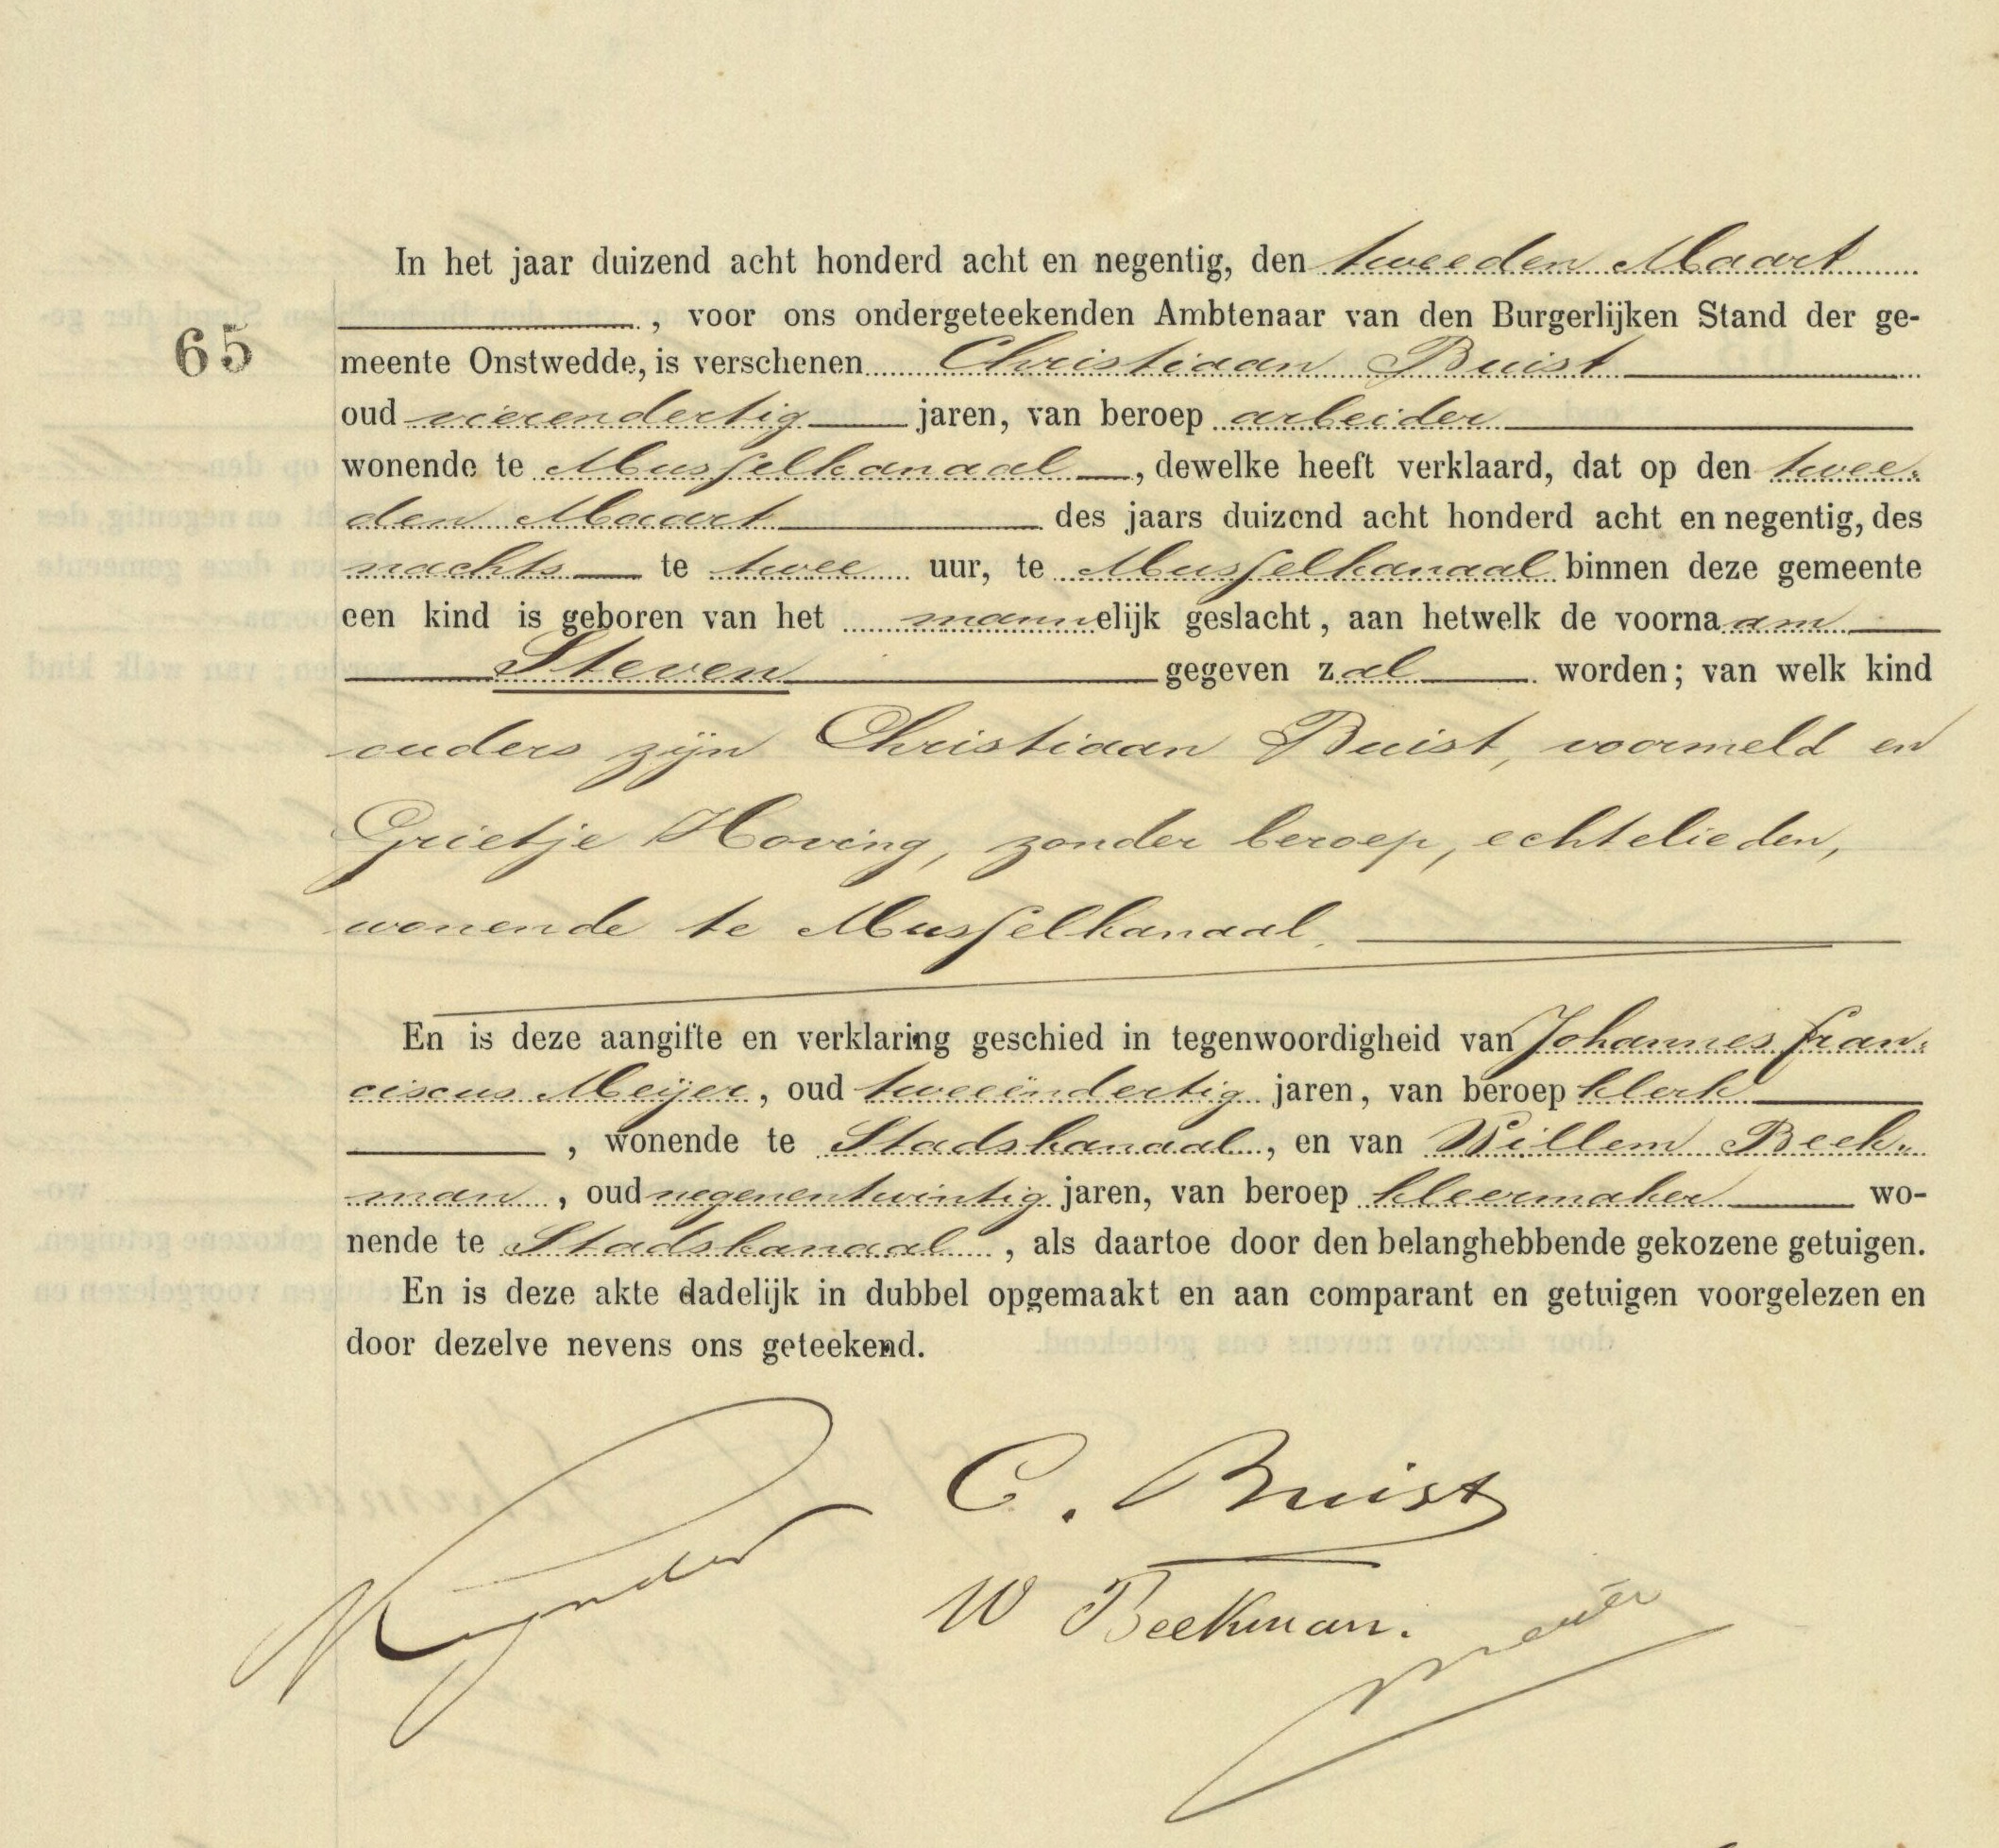 In het jaar duizend acht honderd acht en negentig, den tweeden Maart
, voor ons ondergeteekenden Ambtenaar van den Burgerlijken Stand der ge-
65
meente Onstwedde, is verschenen Christiaan Buist
oud vierendertig jaren, van beroep arbeider
wonende te Musselkanaal, dewelke heeft verklaard, dat op den twee-
den Maart des jaars duizend acht honderd acht en negentig, des
nachts te twee uur, te Musselkanaal binnen deze gemeente
een kind is geboren van het mannelijk geslacht, aan hetwelk de voornaam
Steven gegeven zal worden; van welk kind
ouders zijn Christiaan Buist, voormeld en
Grietje Hoving, zonder beroep, echtelieden,
wonende te Musselkanaal.
En is deze aangifte en verklaring geschied in tegenwoordigheid van Johannes Fran-
ciscus Meijer, oud tweeëndertig jaren, van beroep klerk
, wonende te Stadskanaal, en van Willem Beek-
man, oud negenentwintig jaren, van beroep kleermaker wo-
nende te Stadskanaal, als daartoe door den belanghebbende gekozene getuigen.
En is deze akte dadelijk in dubbel opgemaakt en aan comparant en getuigen voorgelezen en
door dezelve nevens ons geteekend.
C. Buist
W Beekman.